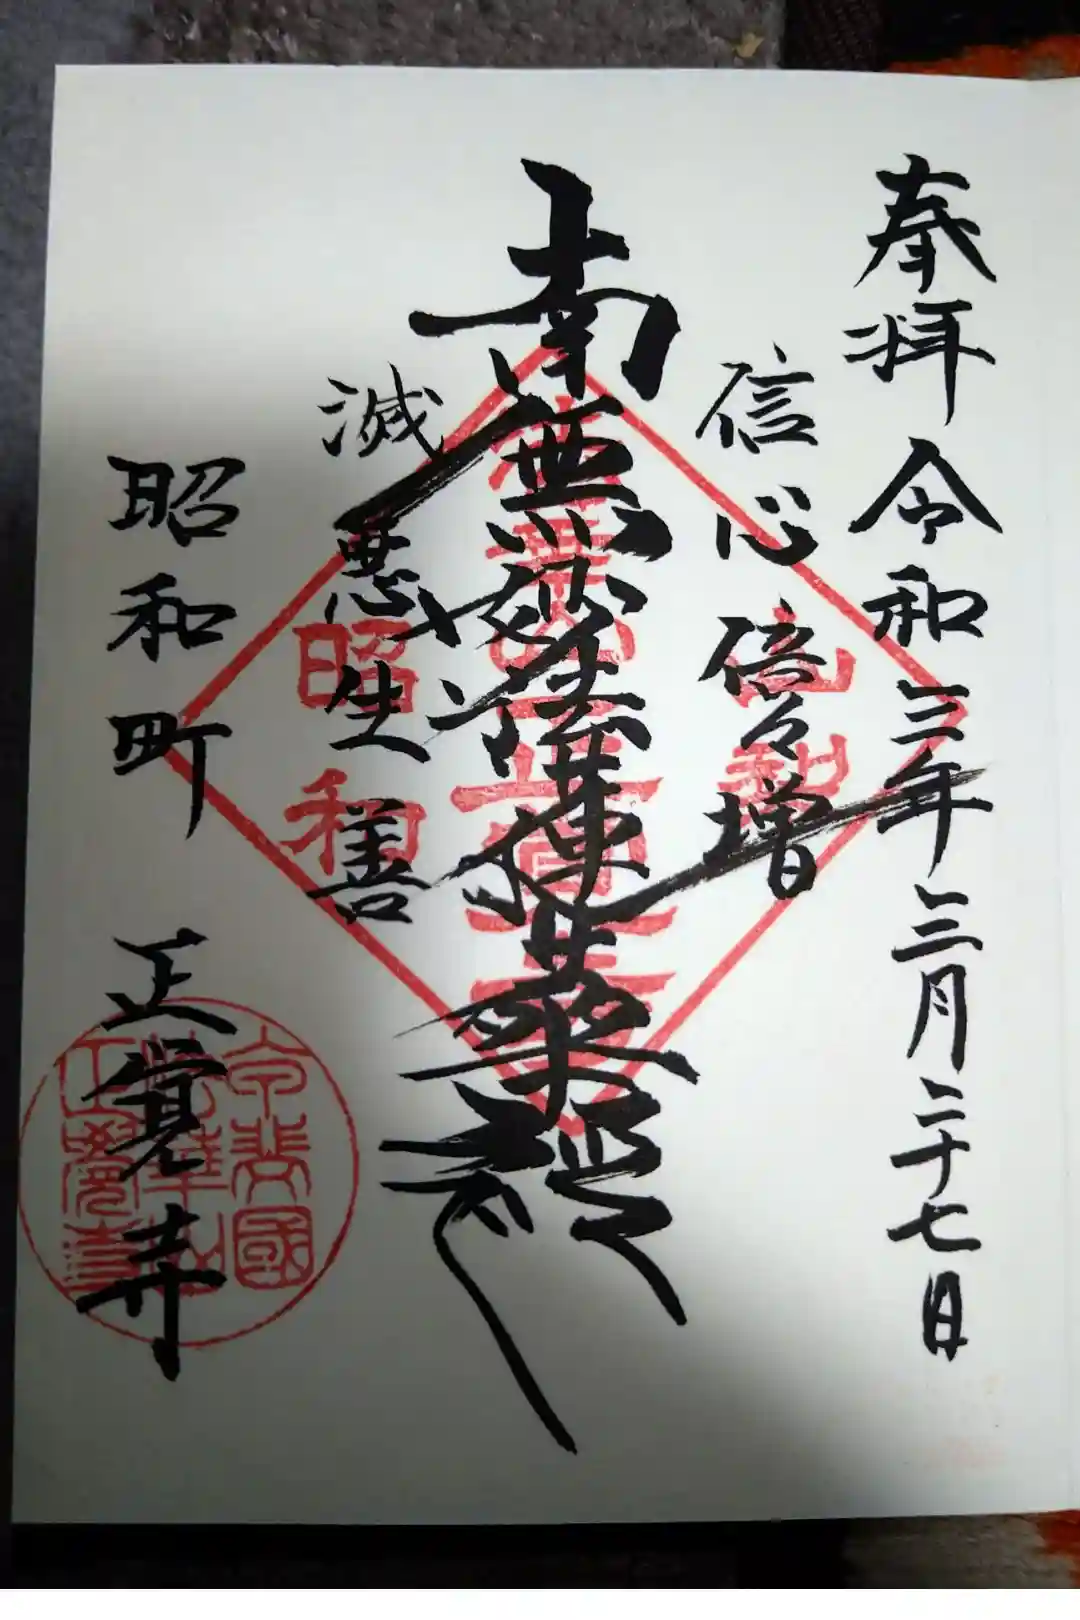 奉拝 令和三年三月二十七日
信心倍々増
南無妙法蓮華経
滅悪生善
昭和町 正覚寺
昭和
甲斐國
法華
正覺寺